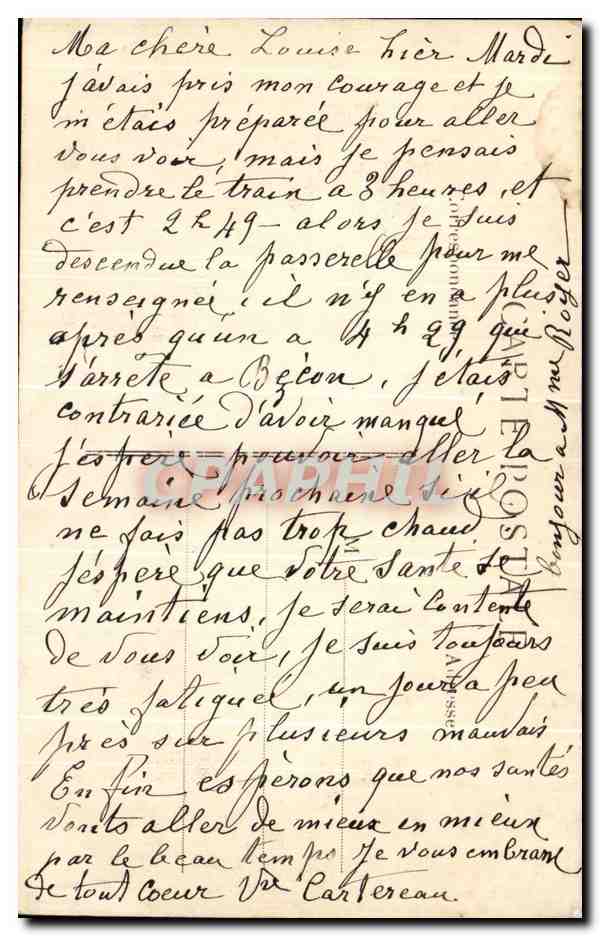 Ma chère Louise hièr Mardi
j'avais pris mon courage et je
m'étais préparée pour aller
vous voir, mais je pensais
prendre le train a 3 heures, et
c'est 2h 49 - alors je suis
descendue la passerelle pour me
renseignée, il n'y en a plus
après qu'un a 4h 29 qui
s'arrète a Bécon, j'étais
contrariée d'avoir manqué
j'espère pouvoir aller la
semaine prochaine si il
ne fais pas trop chaud
j'espère que votre santé se
maintiens, je serai contente
de vous voir, je suis toujours
très fatiguée, un jour a peu
près sur plusieurs mauvais
Enfin espèrons que nos santés
vonts aller de mieux en mieux
par le beau temps Je vous embrasse
de tout coeur Vve Cartereau.
bonjour a Mme Royer
Correspondance
CARTE POSTALE
Adresse
M
CPAPHIL